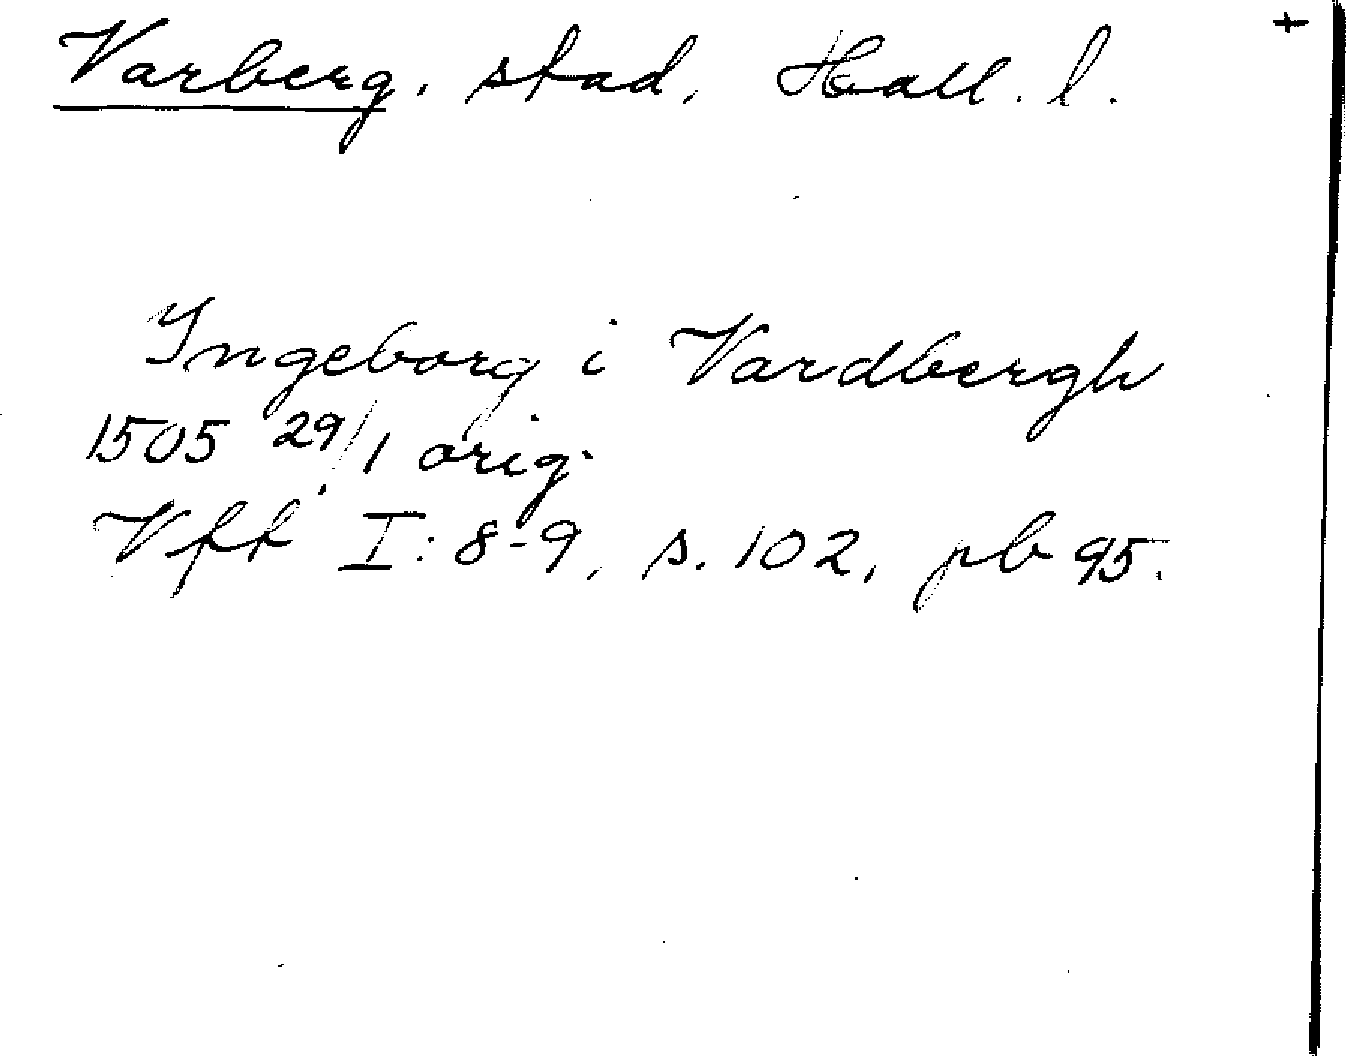 Varberg. stad, Hall. l. +
Ingeborg i Vardbergh
1505 29/1 orig.
Vff I: 8-9, s. 102, pb 95.